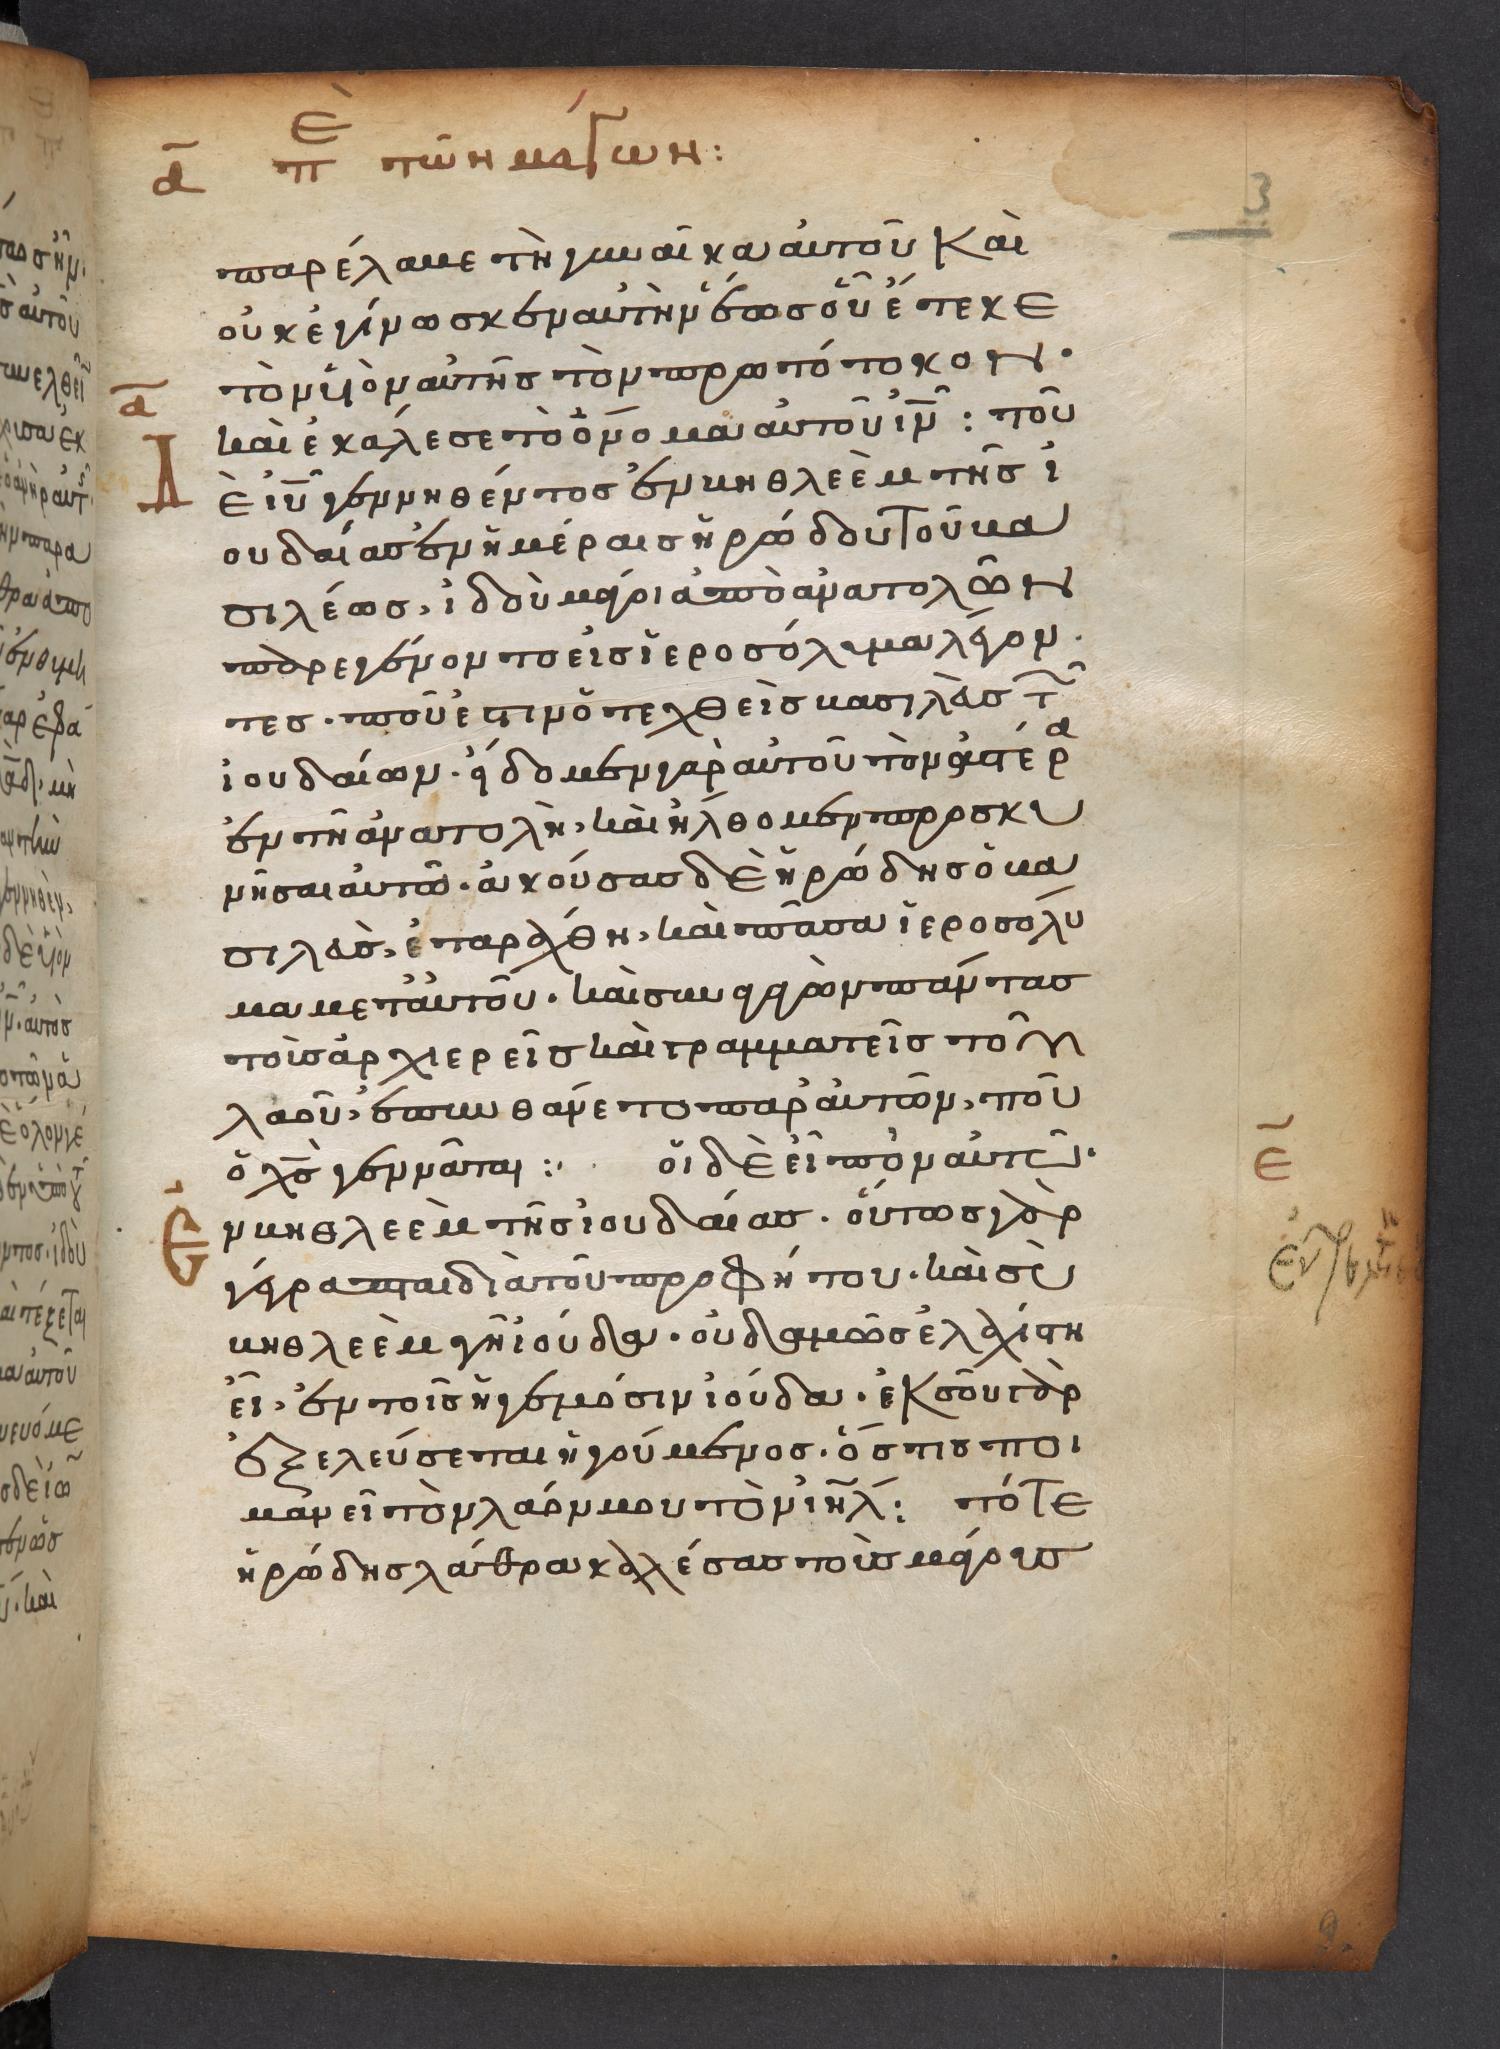 α̅ πὲ τῶν μάγων:
3
παρέλαβε τὴν γυναῖκα αὐτοῦ καὶ
οὐκ ἐγίνωσκεν αὐτὴν ἕως οὗ ἔτεκε
τὸν υἱὸν αὐτῆς τὸν πρωτότοκον·
α̅
καὶ ἐκάλεσε τὸ ὄνομα αὐτοῦ ιν̅: τοῦ
Δὲ ιυ̅ γεννηθέντος ἐν βηθλεὲμ τῆς ἰ
ουδαίας ἐν ἡμέραις ἡρώδου τοῦ βα
σιλέως, ἰδοὺ μάγοι ἀπὸ ἀνατολῶν
παρεγένοντο εἰς ἱεροσόλυμα λέγον
τες· ποῦ ἐστιν ὁ τεχθεὶς βασιλεὺς τῶ
ἰουδαίων· εἴδομεν γὰρ αὐτοῦ τὸν ἀστέρα
ἐν τῇ ἀνατολῇ, καὶ ἤλθομεν προσκυ
νῆσαι αὐτῷ· ἀκούσας δὲ ἡρώδης ὁ βα
σιλεὺς, ἐταράχθη, καὶ πᾶσα ἱεροσόλυ
μα μετ' αὐτοῦ· καὶ συναγαγὼν πάντας
τοὺς ἀρχιερεῖς καὶ γραμματεῖς τοῦ
λαοῦ, ἐπυνθάνετο παρ' αὐτῶν, ποῦ
ὁ χς̅ γεννᾶται:· οἱ δὲ εἶπον αὐτῷ·
ε̅
Ἐν βηθλεὲμ τῆς ἰουδαίας· οὕτως γὰρ
γέγραπται διὰ τοῦ προφήτου· καὶ σὺ
βηθλεὲμ γῆ ἰούδα· οὐδαμῶς ἐλαχίστη
εἶ, ἐν τοῖς ἡγεμόσιν ἰούδα· ἐκ σοῦ γὰρ
ἐξελεύσεται ἡγούμενος· ὅστις ποι
μανεῖ τὸν λαόν μου τὸν ιηλ̅: τότε
ἡρώδης λάθρα καλέσας τοὺς μάγους